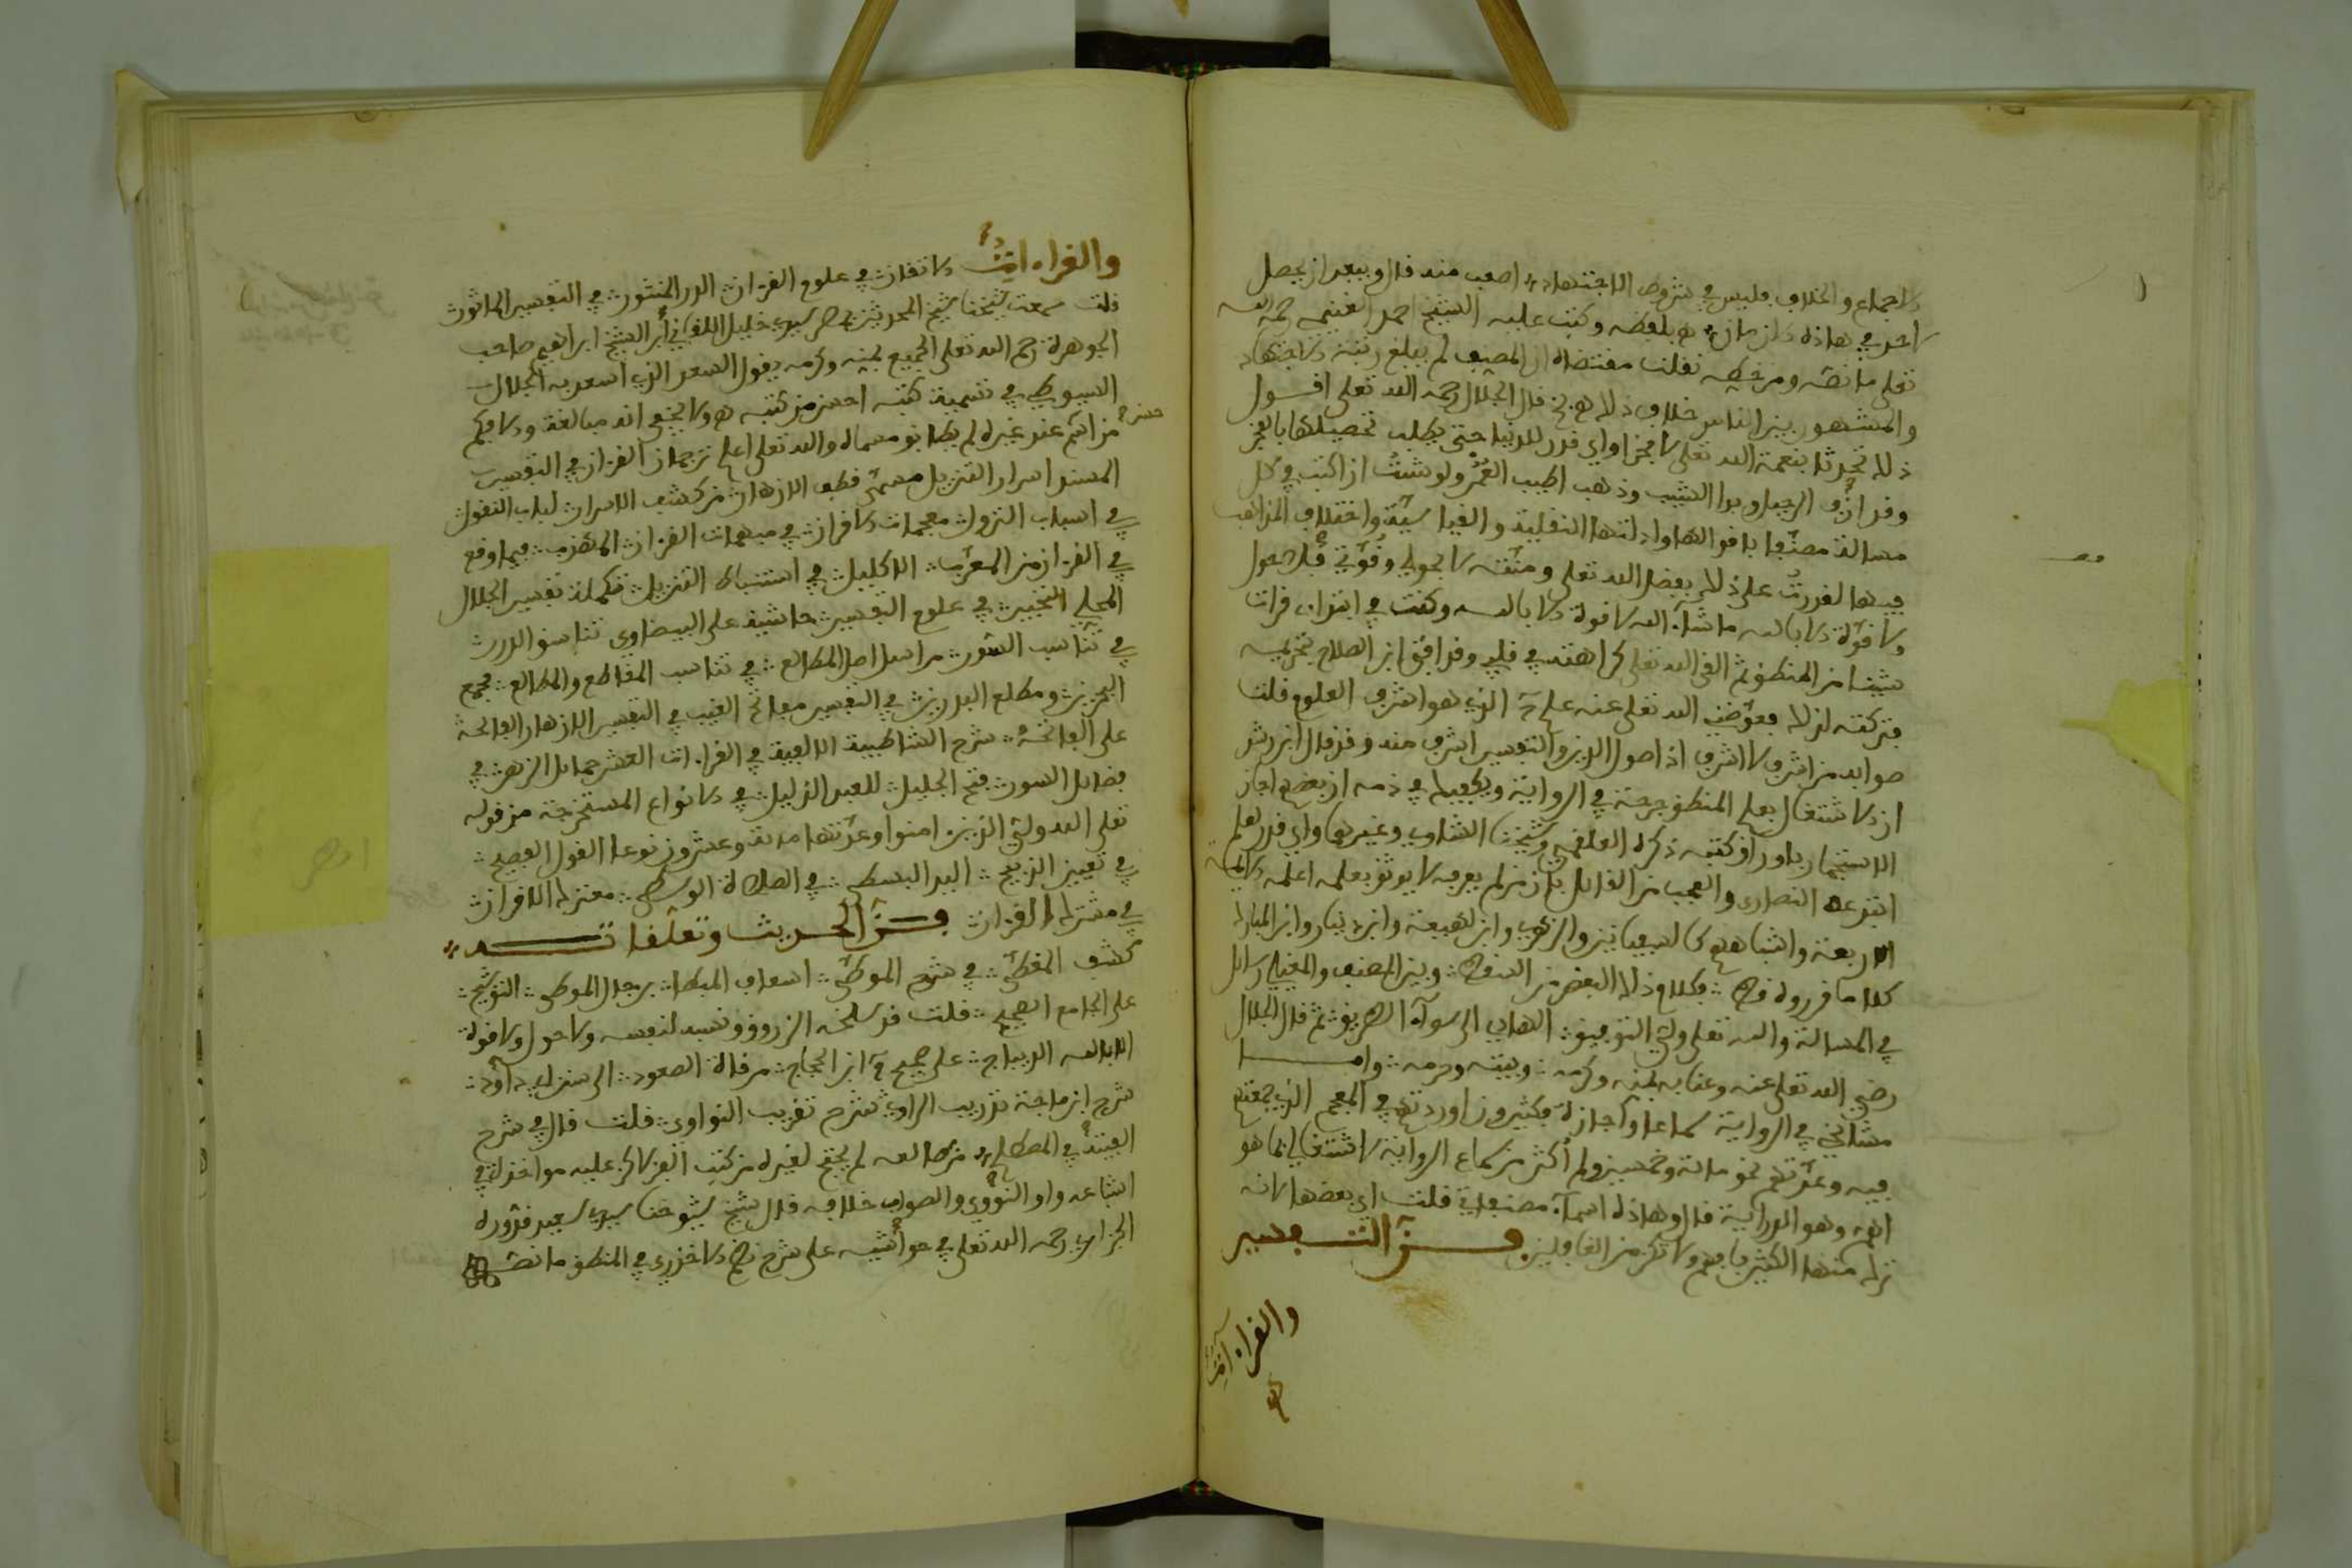 الاجماع والخلاف فليس في شروط الاجتهاد اصعب منه قال ويبعد ان يحصل
لاحد في هاذه الازمان بلفظه وكتب عليه الشيخ احمد الغنيمي رحمه الله
تعلى ما نصه ومن خطه نقلت مقتضاه ان المصنف لم يبلغ رتبة الاجتهاد
والمشهور بين الناس خلاف ذلك قال الجلال رحمه الله تعلى اقول
ذلك تحدثا بنعمة الله تعلى لا فخرا واي قدر للدنيا حتى يطلب تحصيلها بالفخر
وقد ازف الرحيل وبدا الشيب وذهب اطيب العمر ولو شئت ان اكتب في كل
مسالة مصنفا باقوالها وادلتها النقلية والقياسية واختلاف المذاهب
فيها لقدرت على ذلك بفضل الله تعلى ومنته لا بحولي وقوتي فلا حول
ولا قوة الا بالله ما شاء الله لا قوة الا بالله وكنت في ابتداء قرات
شيئا من المنطق ثم القى الله تعلى كراهته في قلبي وقد افتى ابن الصلاح بتحريمه
فتركته لذلك فعوضني الله تعلى عنه علم الذي هو اشرف العلوم قلت
صوابه من اشرف لا اشرف اذ اصول الدين والتفسير اشرف منه وقد قال ابن رشد
ان الاشتغال بعلم المنطق جرحة في الرواية ويكفيك في ذمه ان بعضهم اجاز
الاستجمار باوراق كتبه ذكره العلقمي وشيخنا الشاوي وغيرهما واي قدر لعلم
ابتدعه النصارى والعجب من القائل بان من لم يعرفه لا يوثق بعلمه اعلمه الايمة
الاربعة واشباههم كالسفيانين والزهري وابن لهيعة وابن دينار وابن المبارك
كلا ما قرروه قط فكلام ذلك البعض من السقط وبين المصنف والمغيلي رسائل
في المسالة والله تعلى ولي التوفيق الهادي الى سواء الطريق ثم قال الجلال
رضي الله تعلى عنه وعنا به بمنه وكرمه وبيته وحرمه واما
مشائخي في الرواية سماعا واجازة فكثيرون اوردتهم في المعجم الذي جمعتهم
فيه وعدتهم نحو مائة وخمسين ولم اكثر من سماع الرواية لاشتغالي بما هو
اهم وهو الدراية قال وهاذه اسماء مصنفاتي قلت اي بعضها لانه
ترك منها الكثير فافهم ولا تكن من الغافلين فن التفسير
والقراءات
والقراءات الاتقان في علوم القرءان الدر المنثور في التفسير الماثور
قلت سمعت شيخنا شيخ المحدثين بمصر سيدي خليل اللقاني ابن الشيخ ابراهيم صاحب
الجوهرة رحم الله تعلى الجميع بمنه وكرمه يقول السعد الذي اسعد به الجلال
السيوطي في تسمية كتبه احسن من كتبه ولا يخفى انه مبالغة والا فكم
من اسم حسن عند غيره لم يطابق مسماه والله تعلى اعلم ترجمان القرءان في التفسير
المسند اسرار التنزيل مسمى قطف الازهار من كشف الاسرار لباب النقول
في اسباب النزول مفحمات الاقران في مبهمات القرءان المهذب فيما وقع
في القرءان من المعرب الاكليل في استنباط التنزيل تكملة تفسير الجلال
المحلي التحبير في علوم التفسير حاشية على البيضاوي تناسق الدرر
في تناسب السور مراسل المطالع في تناسب المقاطع والمطالع مجمع
البحرين ومطلع البدرين في التفسير مفاتح الغيب في التفسير الازهار الفائحة
على الفاتحة شرح الشاطبية الالفية في القراءات العشر حمائل الزهر في
فضائل السور فتح الجليل للعبد الذليل في الانواع المستخرجة من قوله
تعلى الله ولي الذين ءامنوا وعدتها مائة وعشرون نوعا القول الفصيح
في تعيين الذبيح اليد البسطى في الصلاة الوسطى معترك الاقران
في مشترك القرءان فن الحديث وتعلقاته
كشف المغطى في شرح الموطى اسعاف المبطا برجال الموطى التوشيح
على الجامع الصحيح قلت قد سلخه الزروق ونسبه لنفسه ولا حول ولا قوة
الا بالله الديباج على صحيح ابن الحجاج مرقاة الصعود الى سنن ابي داود
شرح ابن ماجة تدريب الراوي شرح تقريب النواوي قلت قال في شرح
الفيته في المصطلح من طالعه لم يحتج لغيره من كتب الفن لاكن عليه مواخذات في
اشاعه واو النووي والصواب خلافه قال شيخ شيوخنا سيدي سعيد قدورة
الجزايري رحمه الله تعلى في حواشيه على شرح نظم الاخضري في المنطق ما نصه